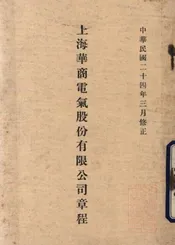 中華民國二十四年三月修正
上海華商電氣股份有限公司章程